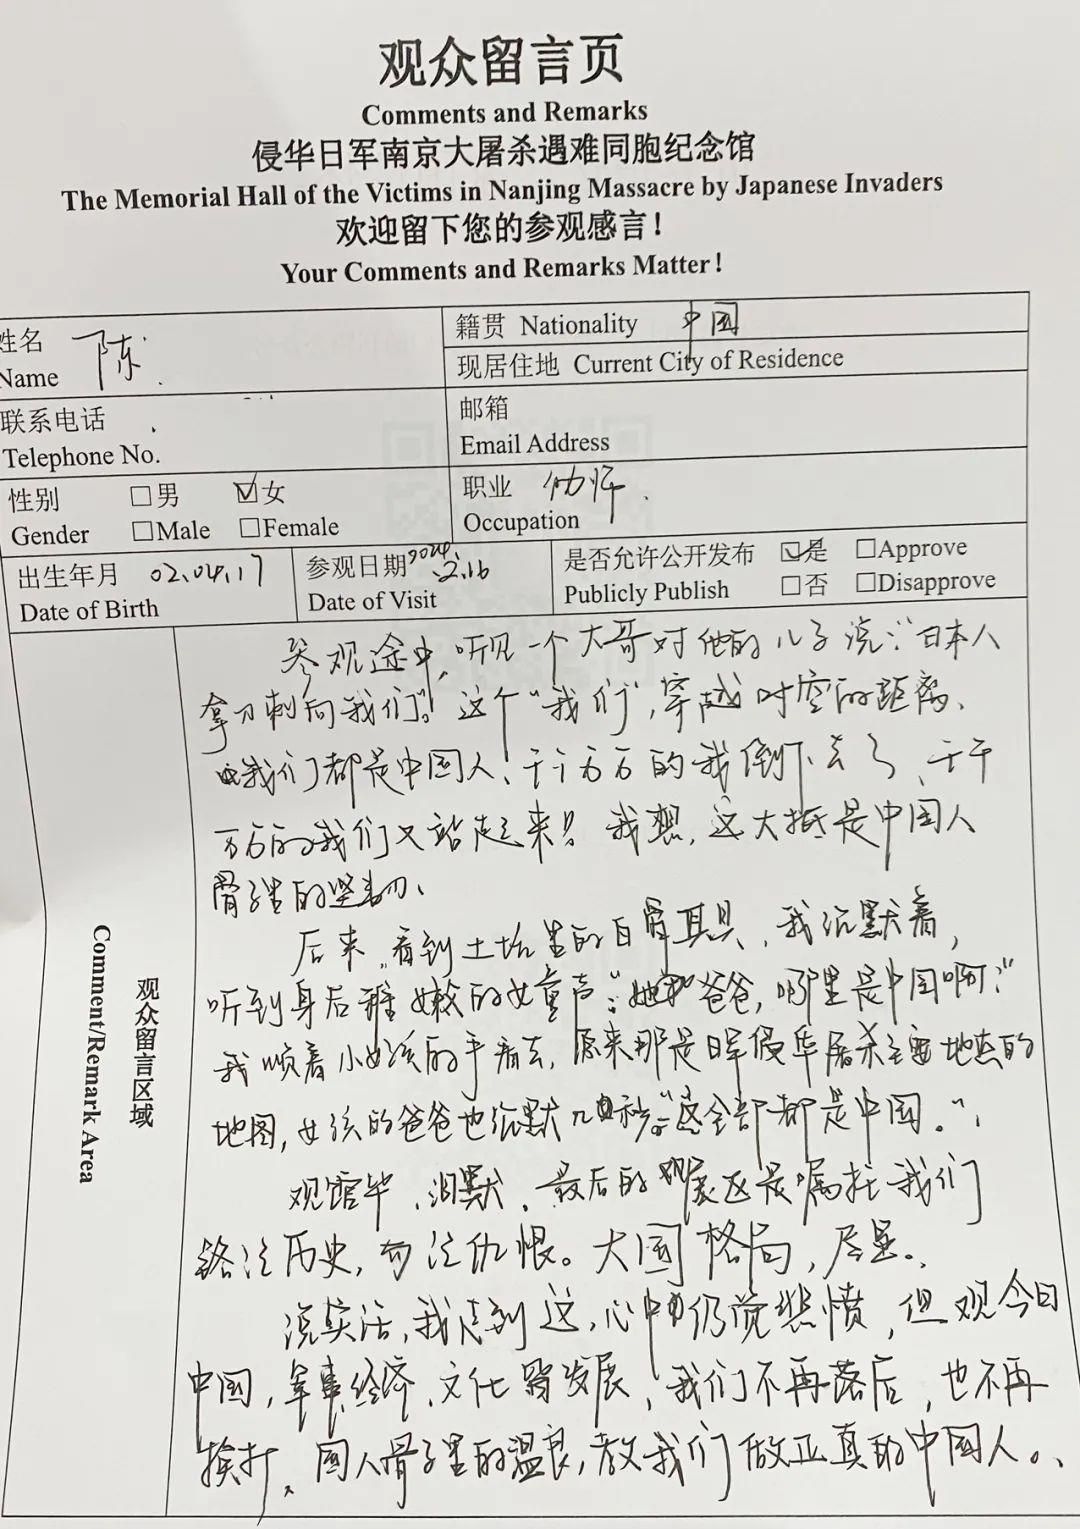 观众留言页
Comments and Remarks
侵华日军南京大屠杀遇难同胞纪念馆
The Memorial Hall of the Victims in Nanjing Massacre by Japanese Invaders
欢迎留下您的参观感言！
Your Comments and Remarks Matter！
姓名 陈
Name
籍贯 Nationality 中国
现居住地 Current City of Residence
联系电话
Telephone No.
邮箱
Email Address
性别 □男 ☑女
Gender □Male □Female
职业 幼师
Occupation
出生年月 02.04.17
Date of Birth
参观日期 2024.2.16
Date of Visit
是否允许公开发布 ☑是 □Approve
Publicly Publish □否 □Disapprove
观众留言区域
Comment/Remark Area
参观途中，听见一个大哥对他的儿子说：“日本人
拿刀刺向我们”。这个“我们”，穿越时空的距离、
我们都是中国人！千千万万的我倒下去了、千千
万万的我们又站起来！我想，这大抵是中国人
骨子里的坚韧、
后来，看到土坑里的白骨，我沉默着，
听到身后稚嫩的女童声：“爸爸，哪里是中国啊？”
我顺着小女孩的手看去，原来那是日军侵华屠杀主要地点的
地图，女孩的爸爸也沉默几秒：“这全部都是中国。”
观馆毕、泪默、最后的展区是嘱托我们
铭记历史，勿记仇恨。大国格局，尽显、
说实话，我走到这，心中仍觉悲愤，但观今日
中国，军事、经济、文化皆发展，我们不再落后，也不再
挨打、国人骨子里的温良，教我们做正真的中国人。